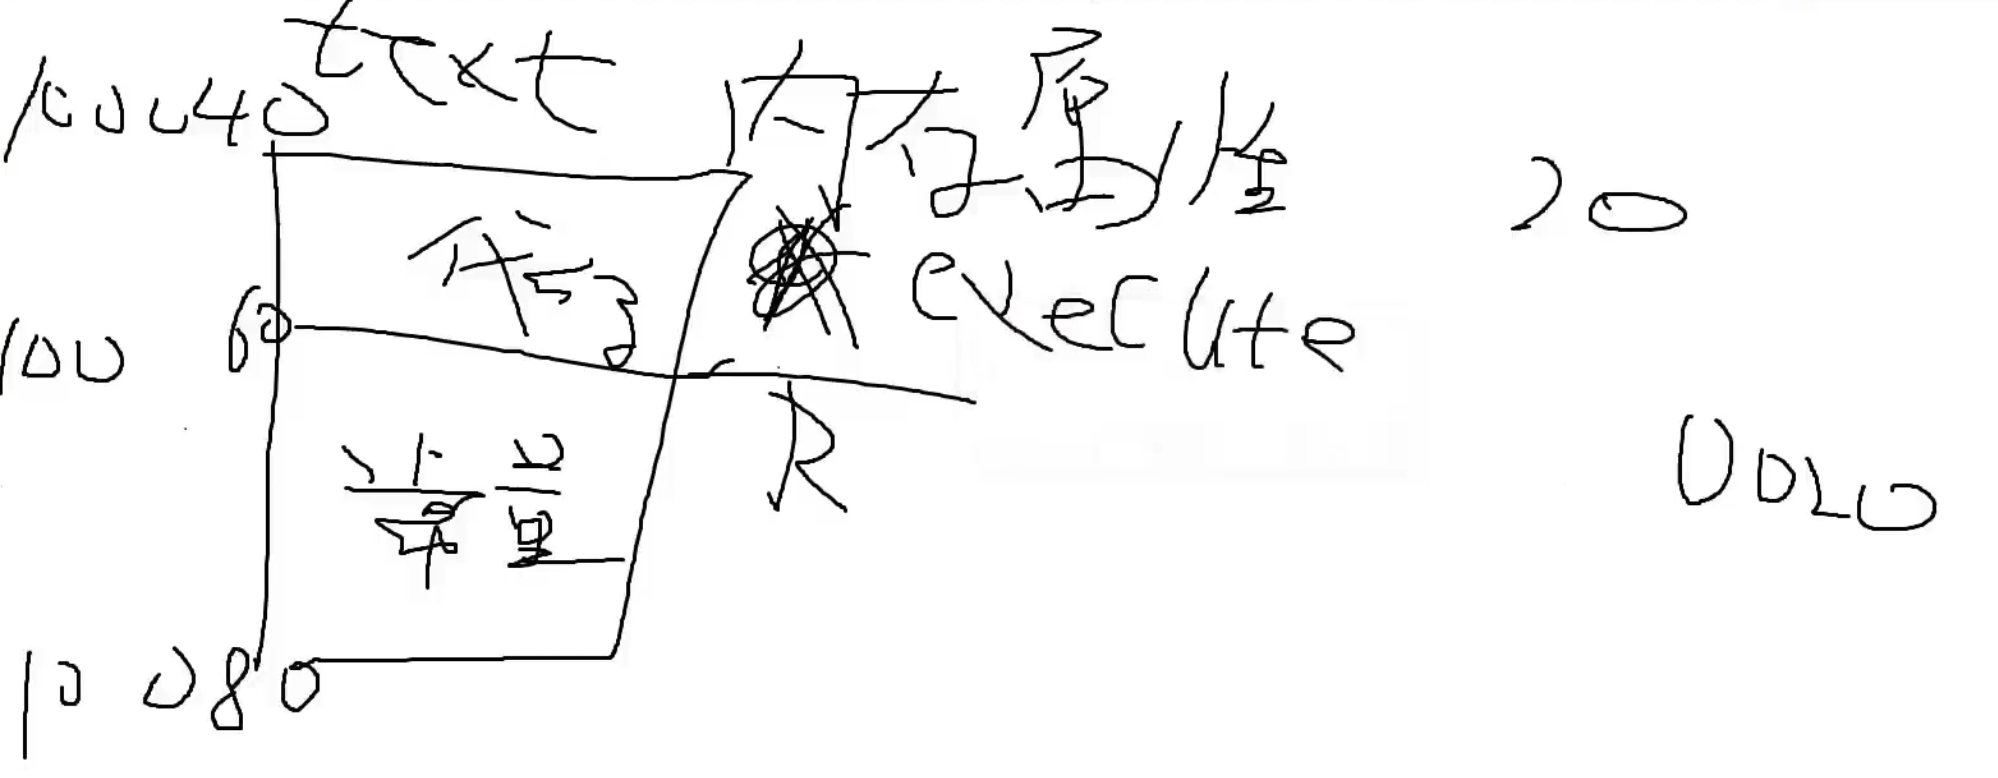 text
100040
内存属性
20
代码
execute
100 60
R
0020
常量
10 080